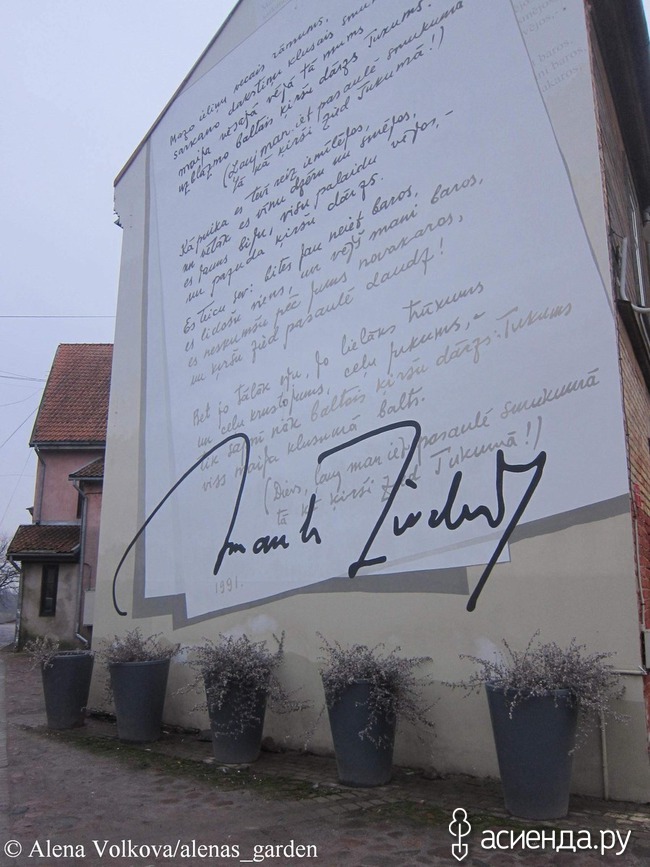 Mazo ieliņu vecais rāmums,
sarkano dakstiņu klusais smukums
maija nesajā vējā tā mums
uzblāzmo baltais ķiršu dārzs Tukums.
(Ļauj man iet pasaulē smukumā
tā kā ķirši zied Tukumā!)
es tevī reiz iemītējos,
un vēlāk es vīnu dzēru un smējos,
es jums biju, visu palaidu vējos,–
un pazuda ķiršu dārzs.
Es ticu sev: bites jau neiet baros,
es lidošu viens, un vējš mani baros,
es neskumšu pēc jums novakaros,
un ķiršu zied pasaulē daudz!
Bet jo tālāk eju, jo lielāks trūkums
un ceļu krustojums, ceļu jukums,–
tik sapnī nāk baltais ķiršu dārzs: Tukums
viss maija klusumā balts.
(Dievs, ļauj man iet pasaulē smukumā
tā kā ķirši zied Tukumā!)
Imants Ziedonis
1991.
© Alena Volkova/alenas_garden
асиенда.ру